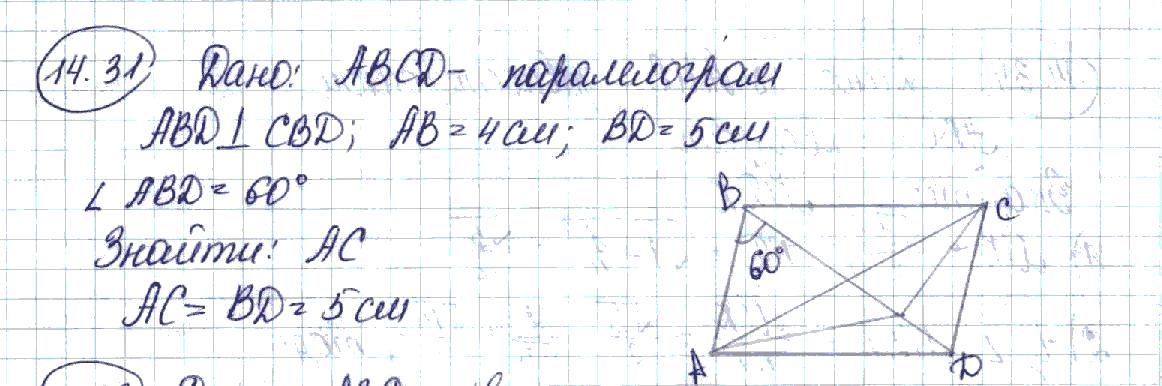 14.31 Дано: ABCD - паралелограм
ABD ⊥ CBD; AB = 4 см; BD = 5 см
∠ ABD = 60°
Знайти: AC
AC = BD = 5 см
B
C
60°
A
D